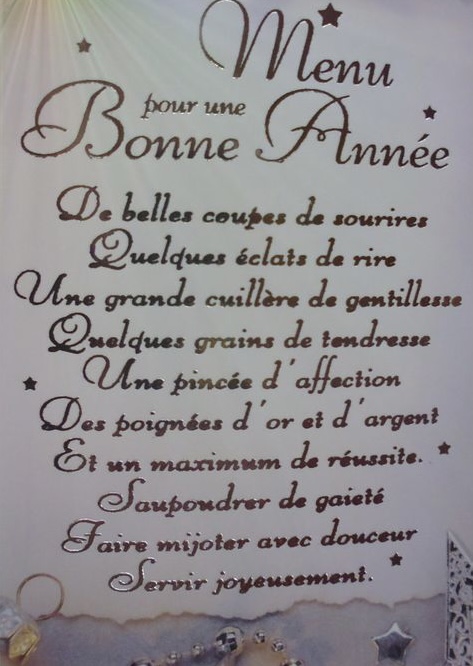 Menu
pour une
Bonne Année
De belles coupes de sourires
Quelques éclats de rire
Une grande cuillère de gentillesse
Quelques grains de tendresse
Une pincée d'affection
Des poignées d'or et d'argent
Et un maximum de réussite.
Saupoudrer de gaieté
Faire mijoter avec douceur
Servir joyeusement.